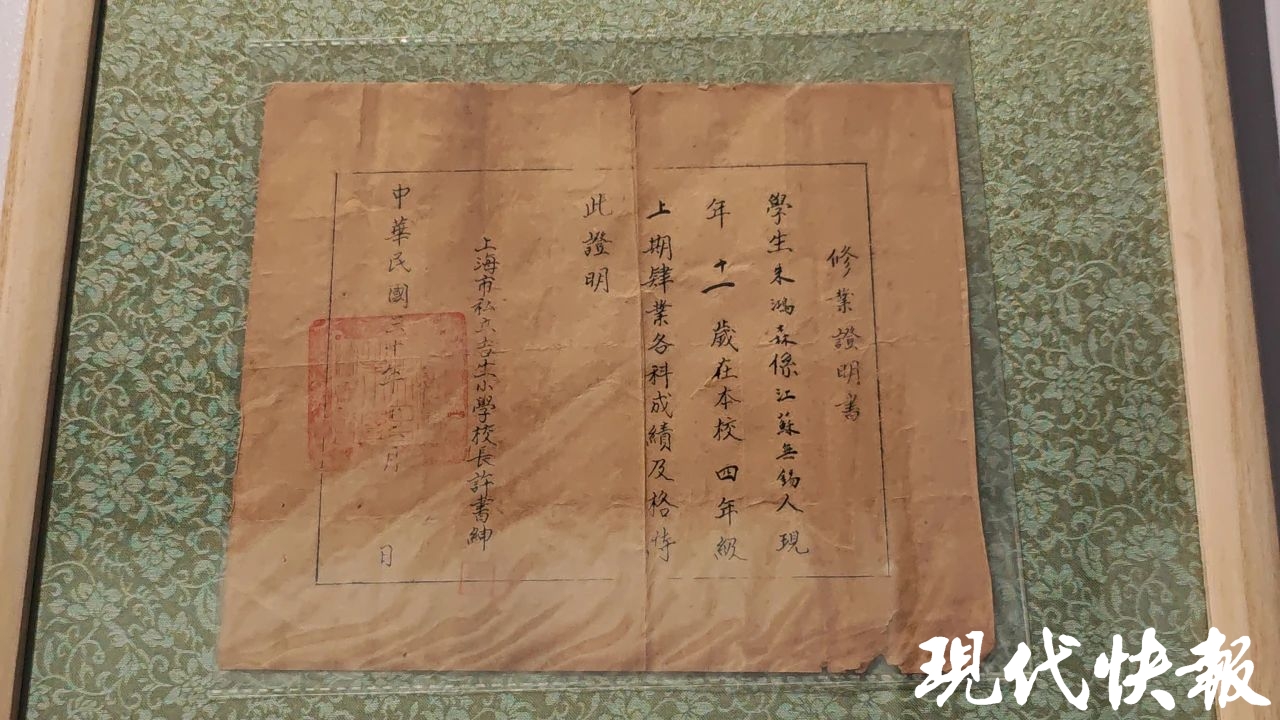 修業證明書
學生朱鴻森係江蘇無錫人現
年十一歲在本校四年級
上期肄業各科成績及格特
此證明
上海市私立吉生小學校長許書紳
中華民國三十年十二月 日
現代快報